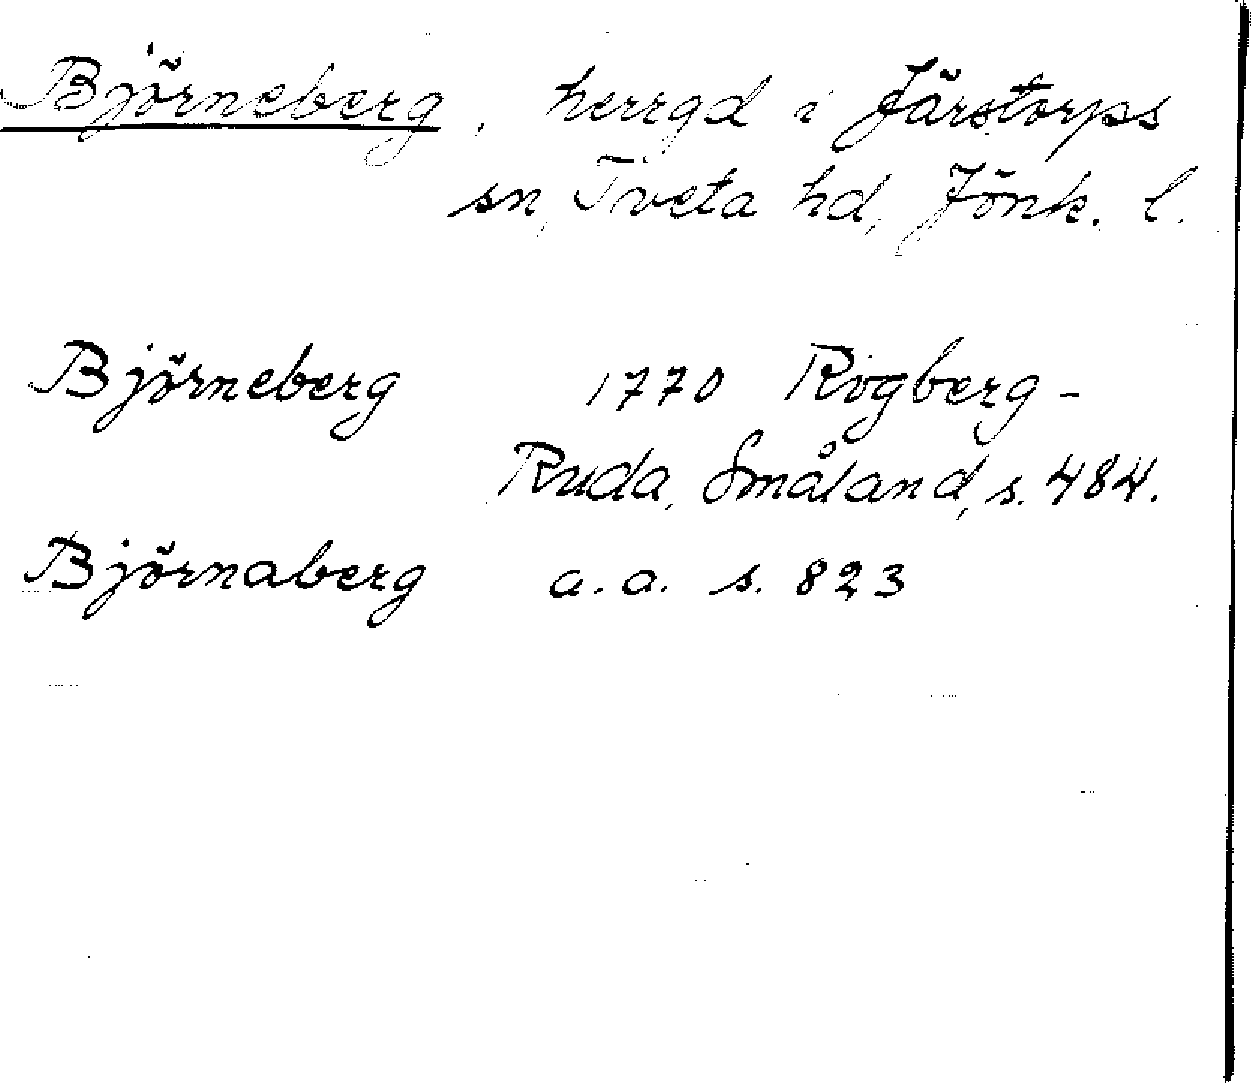 Björneberg, herrgd i Järstorps
sn, Tveta hd, Jönk. l.
Björneberg 1770 Rogberg-
Ruda, Småland, s. 484.
Björnaberg a.a. s. 823